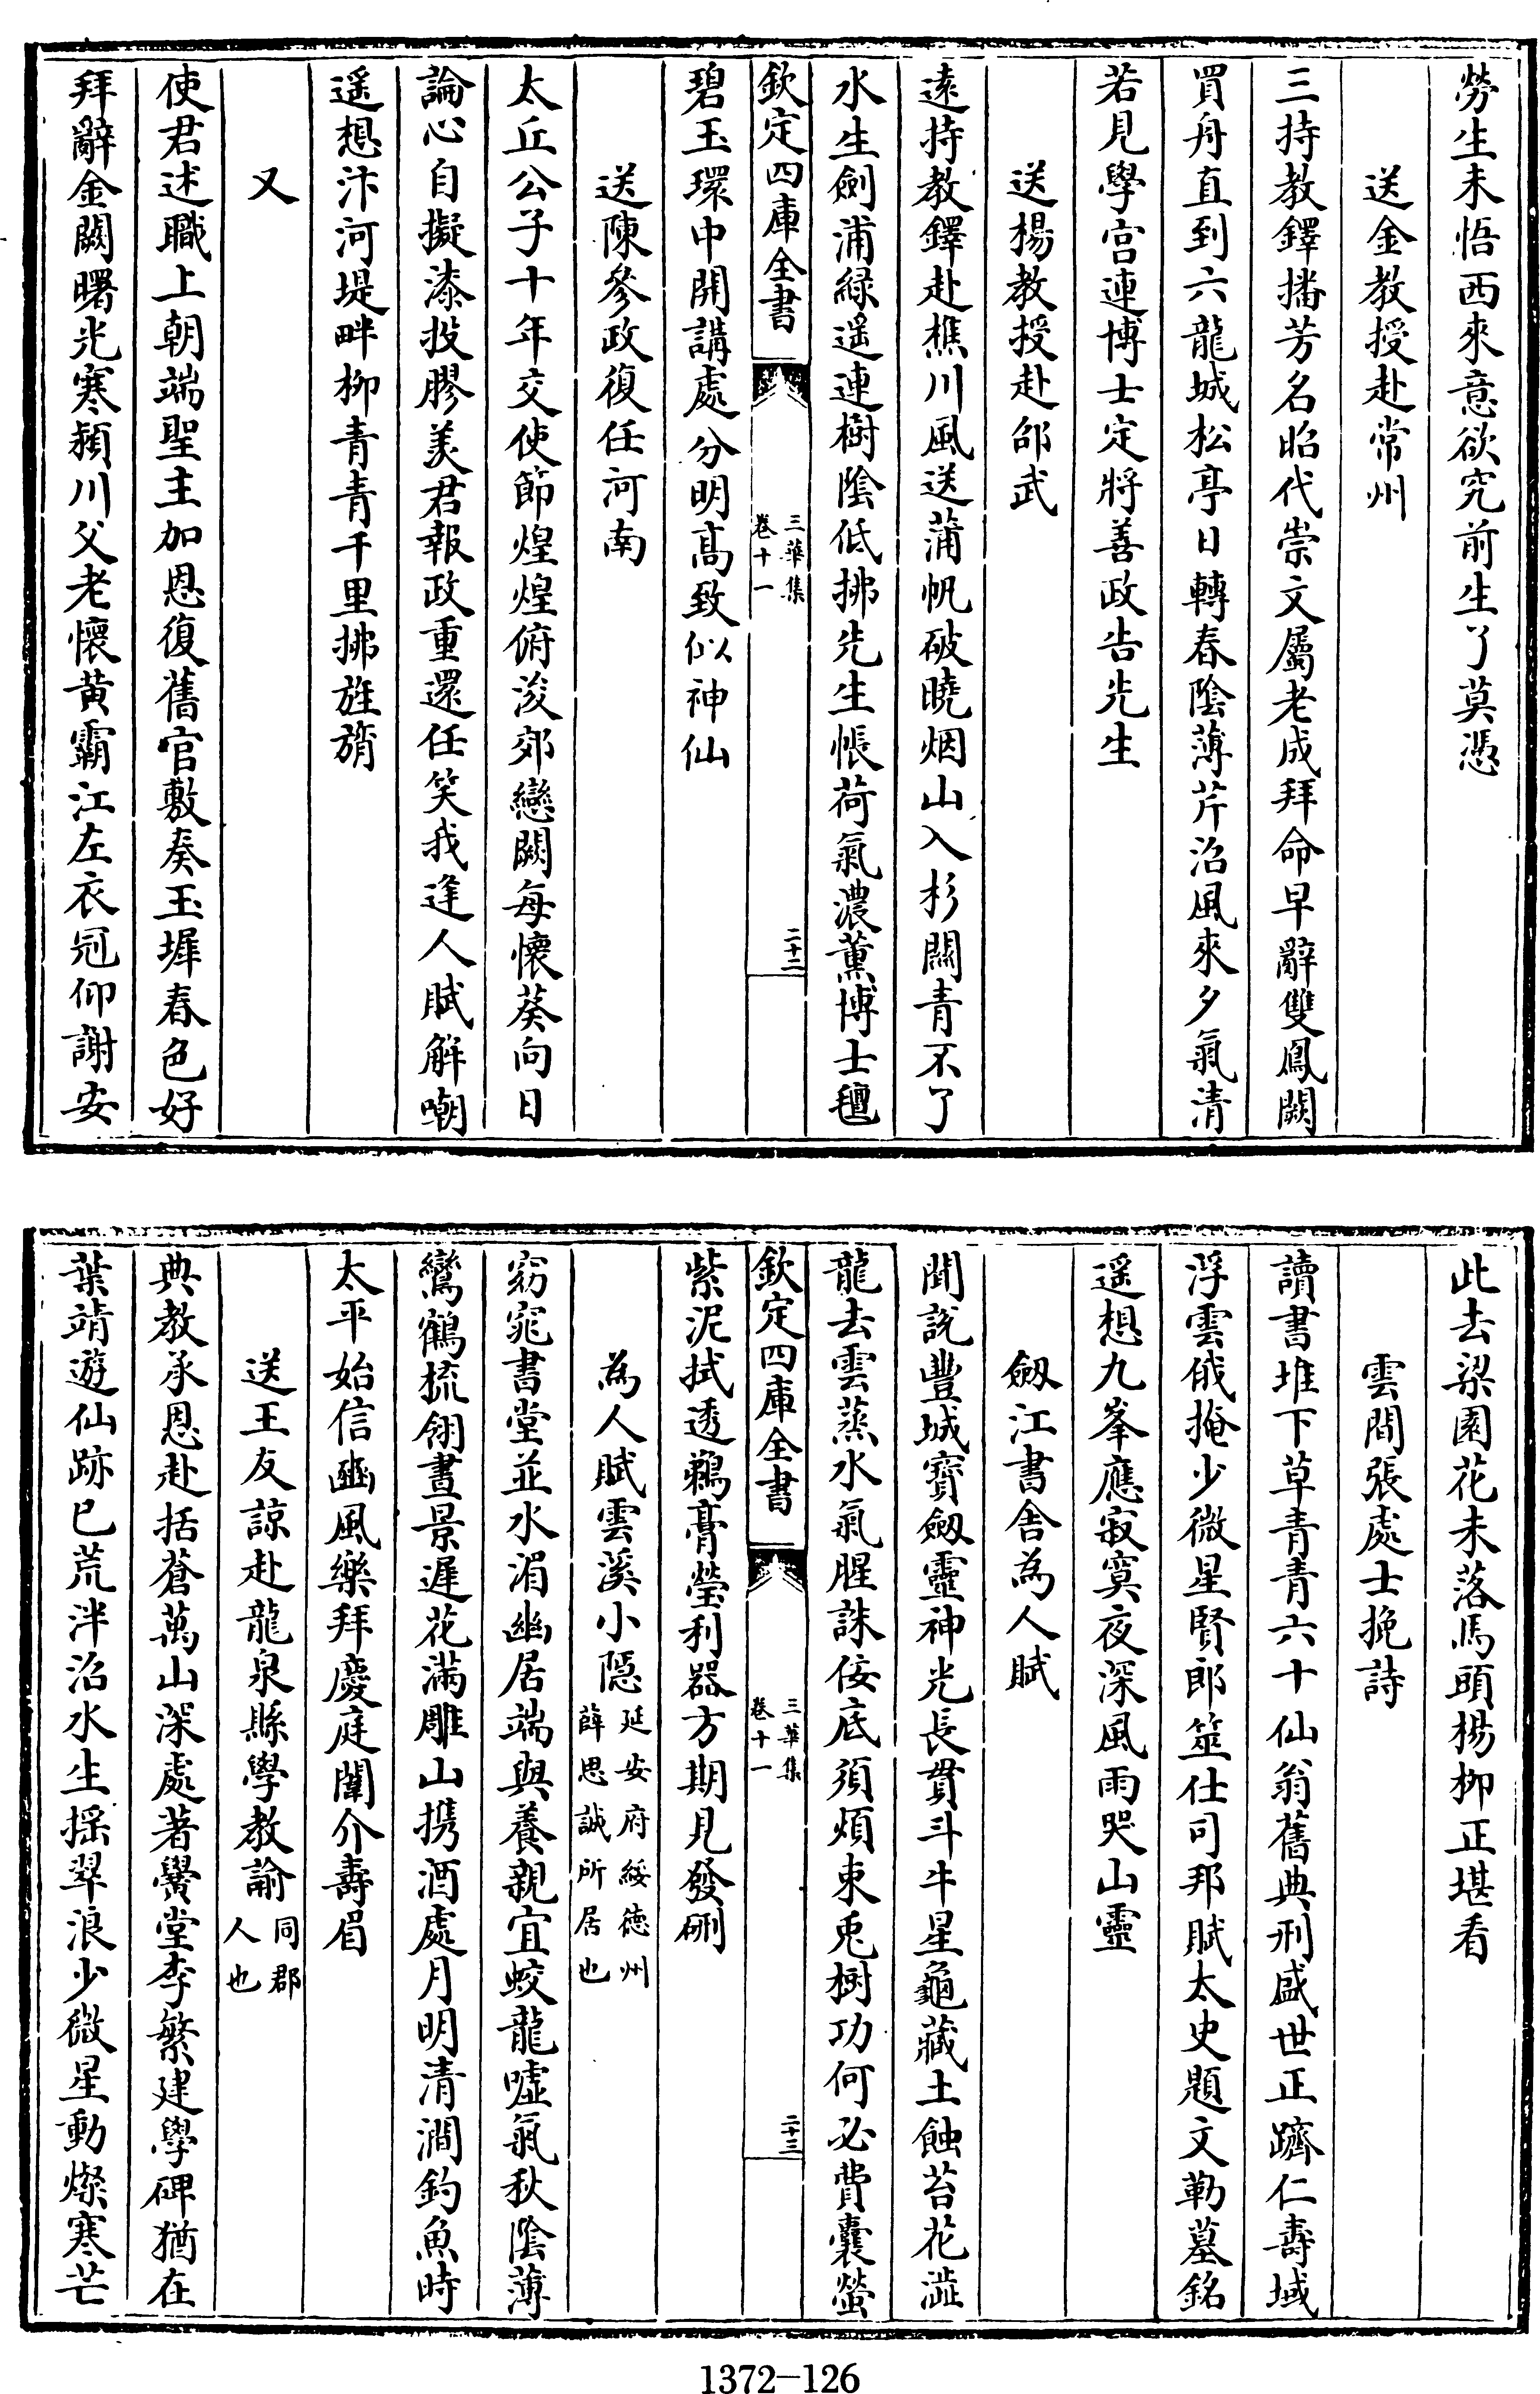 勞生未悟西來意欲究前生了莫憑
送金教授赴常州
三持教鐸播芳名昭代崇文屬老成拜命早辭雙鳳闕
買舟直到六龍城松亭日轉春陰薄芹沼風來夕氣清
若見學宫連博士定將善政告先生
送楊教授赴邵武
遠持教鐸赴樵川風送蒲帆破曉烟山入杉關青不了
水生劍浦緑遥連樹陰低拂先生帳荷氣濃薰博士氊
欽定四庫全書
三華集
卷十一
二十二
碧玉環中開講處分明髙致似神仙
送陳參政復任河南
太丘公子十年交使節煌煌俯浚郊戀闕每懷葵向日
論心自擬漆投膠羙君報政重還任笑我逢人賦解嘲
遥想汴河堤畔柳青青千里拂旌旓
又
使君述職上朝端聖主加恩復舊官敷奏玉墀春色好
拜辭金闕曙光寒潁川父老懷黄霸江左衣冠仰謝安
此去梁園花未落馬頭楊柳正堪看
雲間張處士挽詩
讀書堆下草青青六十仙翁舊典刑盛世正躋仁壽域
浮雲俄掩少微星賢郎筮仕司邦賦太史題文勒墓銘
遥想九峯應寂寞夜深風雨哭山靈
劔江書舍為人賦
聞説豐城寳劔靈神光長貫斗牛星龜藏土蝕苔花澁
龍去雲蒸水氣腥誅佞底須煩東兎樹功何必費囊螢
欽定四庫全書
三華集
卷十一
二十三
紫泥拭透鵜膏瑩利器方期見發硎
為人賦雲溪小隠延安府綏徳州薛思誠所居也
窈窕書堂並水湄幽居端與養親宜蛟龍嘘氣秋陰薄
鸞鶴梳翎晝景遲花滿雕山携酒處月明清澗釣魚時
太平始信豳風樂拜慶庭闈介壽眉
送王友諒赴龍泉縣學教諭同郡人也
典教承恩赴括蒼萬山深處著黌堂李繁建學碑猶在
葉靖遊仙跡已荒泮沼水生揺翠浪少微星動燦寒芒
1372-126